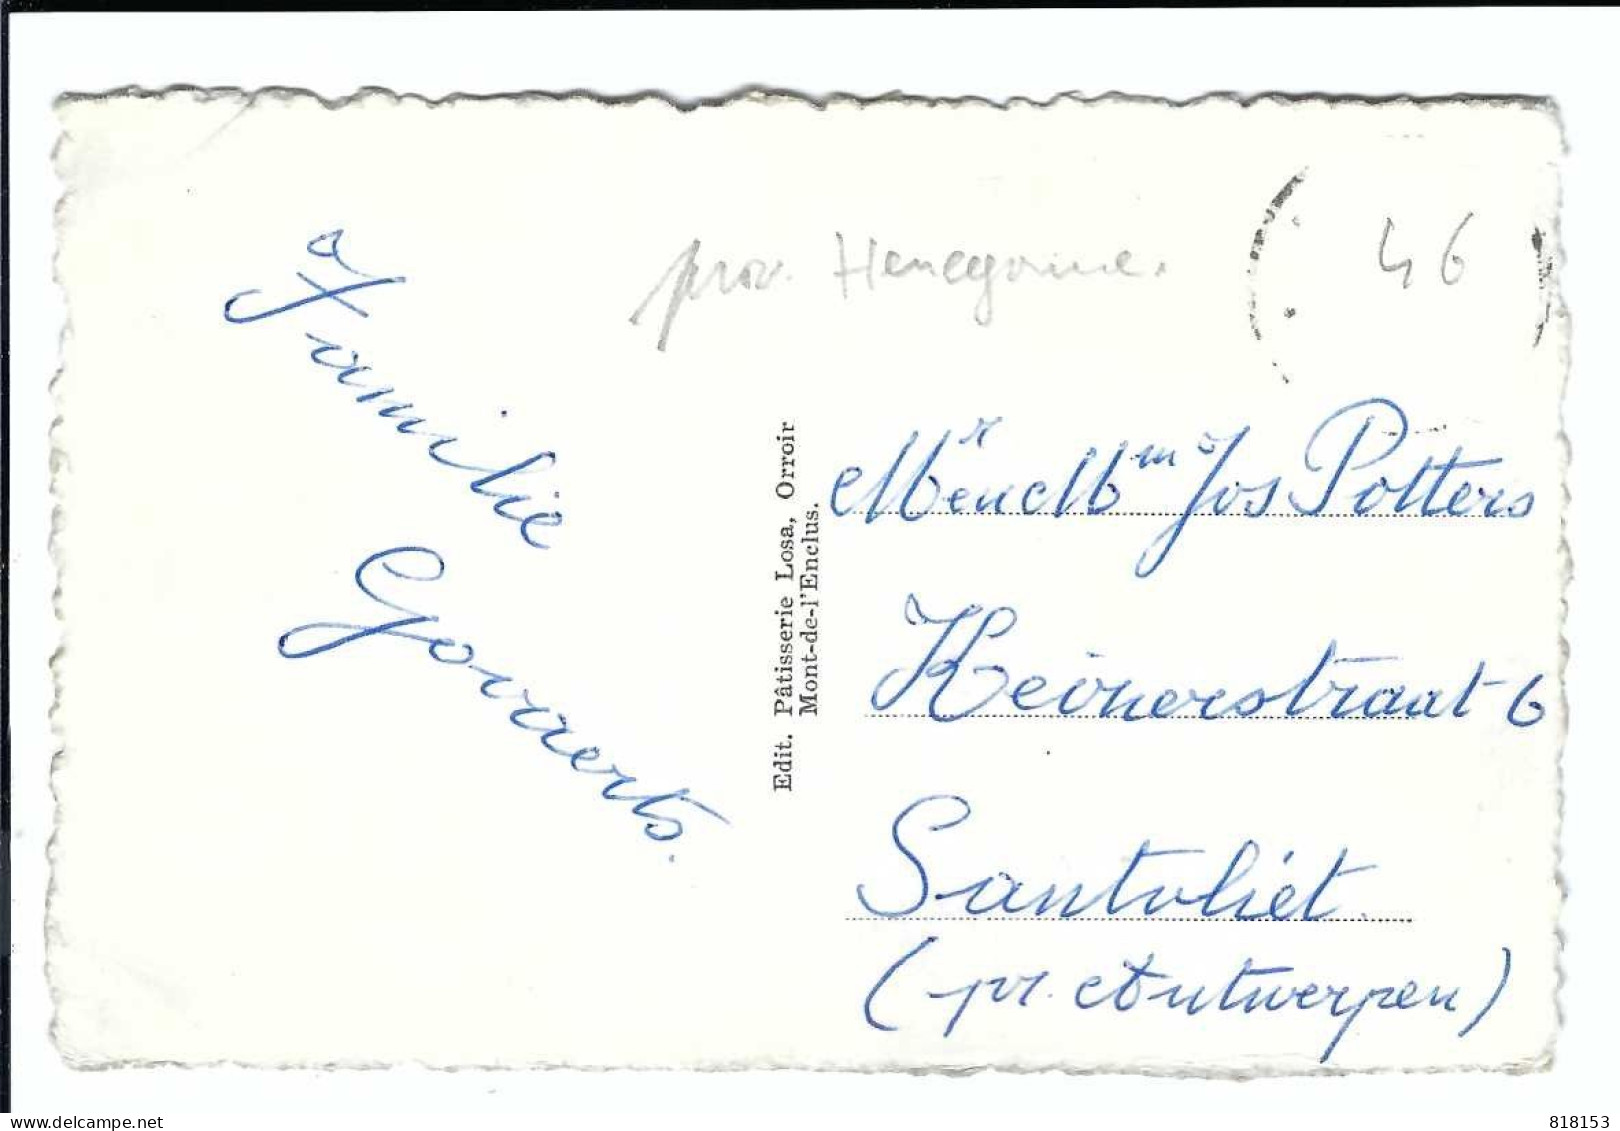 prov. Henegouwe.
46
Familie
Govaerts.
Edit. Pâtisserie Losa, Orroir
Mont-de-l'Enclus.
Mr en Mm Jos Potters
Keinerstraat 6
Santvliet.
(pr. Antwerpen)
delcampe.net
818153